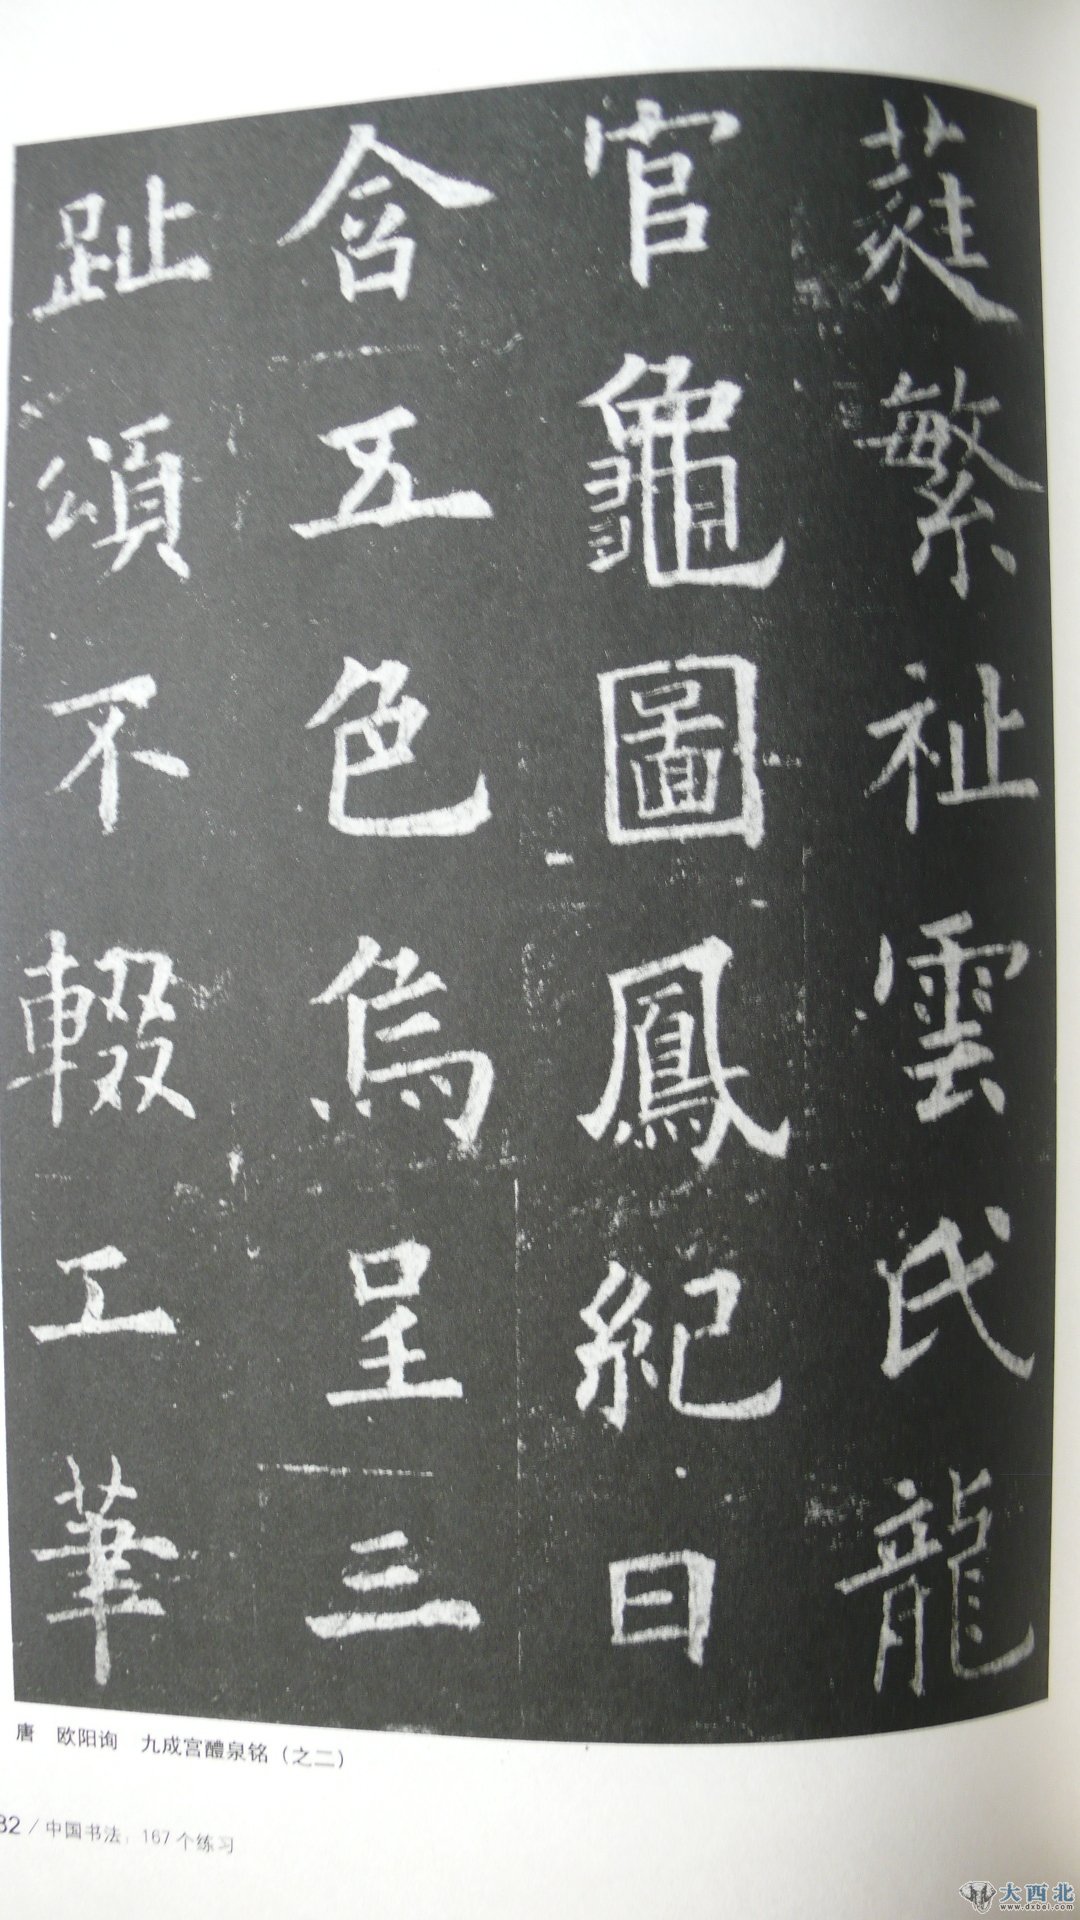 蕤繁祉雲氏龍
官龜圖鳳紀日
含五色烏呈三
趾頌不輟工筆
唐 欧阳询 九成宫醴泉铭（之二）
82 / 中国书法：167个练习
大西北
www.dxbei.com